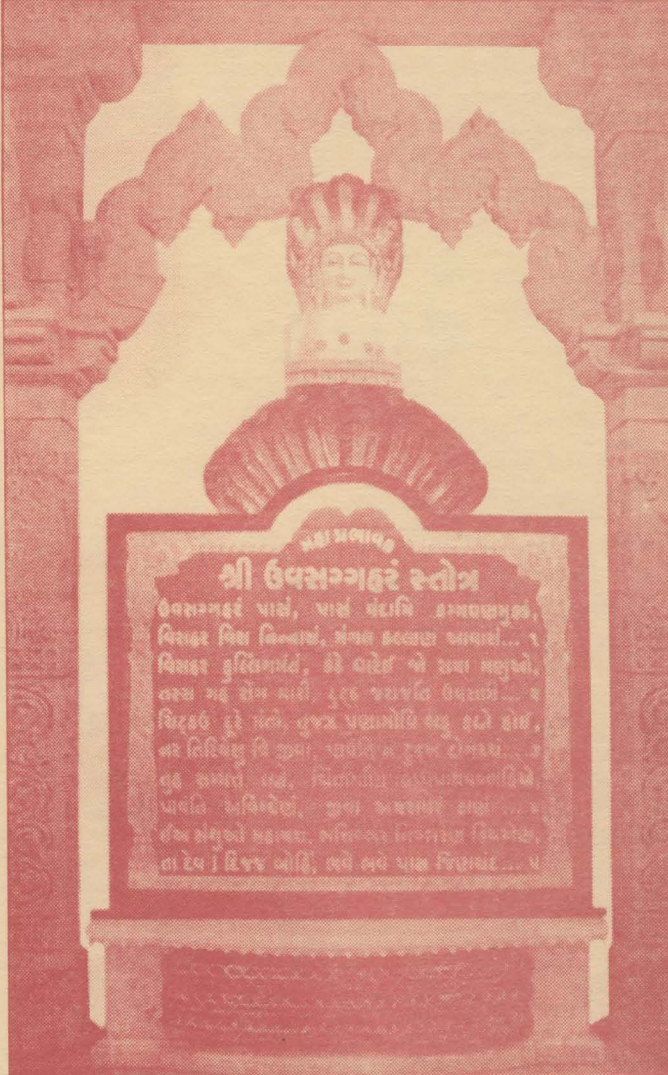 મહાપ્રભાવક
શ્રી ઉવસગ્ગહરં સ્તોત્ર
ઉવસગ્ગહરં પાસં, પાસં વંદામિ કમ્મઘણમુક્કં,
વિસહર વિસ નિન્નાસં, મંગલ કલ્લાણ આવાસં... ૧
વિસહર ફુલિંગમંતં, કંઠે ધારેઈ જો સયા મણુઓ,
તસ્સ ગહ રોગ મારી, દુટ્ઠ જરાજંતિ ઉવસામં... ૨
ચિટ્ઠઉ દૂરે મંતો, તુજઝ પણામોવિ બહુ ફલો હોઈ,
નર તિરિએસુ વિ જીવા, પાવંતિ ન દુક્ખ દોગચ્ચં... ૩
તુહ સમ્મત્તે લદ્ધે,
પાવંતિ અવિગ્ઘેણં, જીવા અયરામરં ઠાણં... ૪
ઈઅ સંથુઓ મહાયસ, ભત્તિબ્ભર નિબ્ભરેણ હિયએણ,
તા દેવ ! દિજ્જ બોહિં, ભવે ભવે પાસ જિણચંદ.... ૫